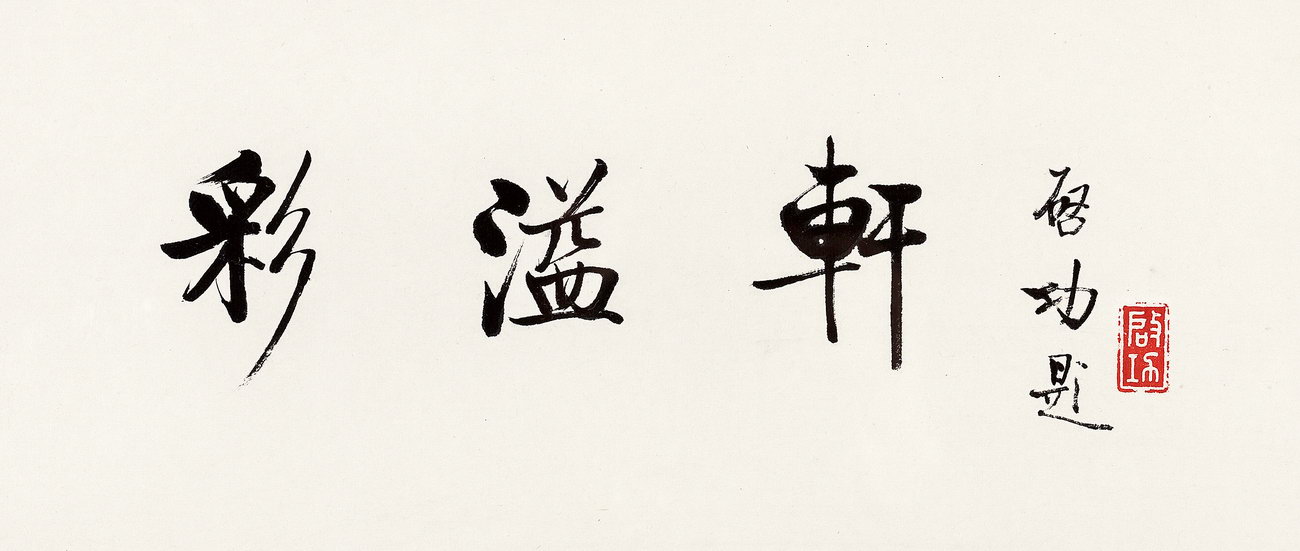 彩溢軒
啓功題
啓功